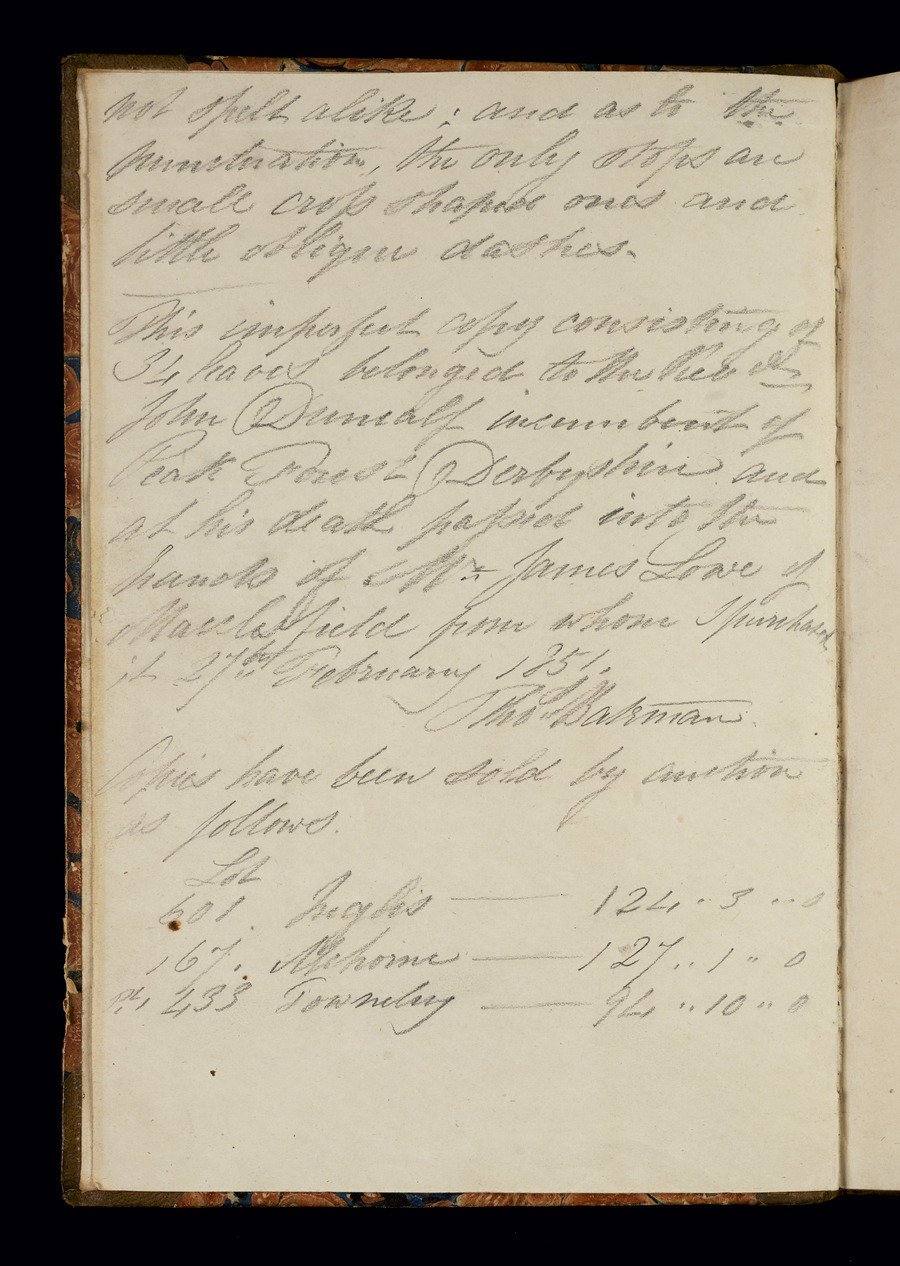 not spelt alike; and as to the
punctuation, the only stops are
small cross shaped ones and
little oblique dashes.
This imperfect copy consisting of
34 leaves belonged to the Revd
John Duncalf incumbent of
Peak Forest Derbyshire and
at his death passed into the
hands of Mr. James Lowe of
Macclesfield from whom I purchased
it 27th February 1851.
Thos. Bateman.
Copies have been sold by auction
as follows.
Lot
601 Inglis — 124 " 3 " 0
167. Alchorne — 127 " 1 " 0
pt. 433 Towneley — 94 " 10 " 0